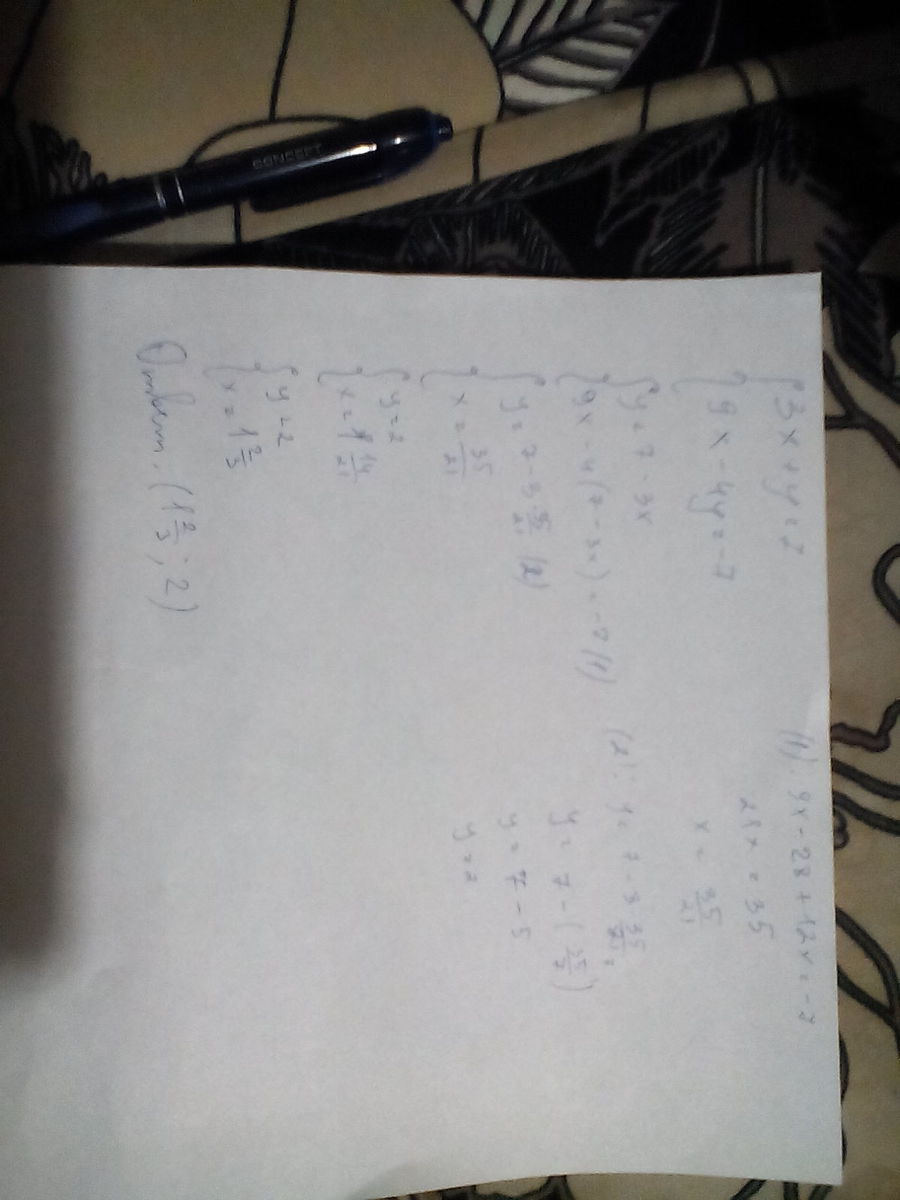 3x + y = 7
9x - 4y = -7
y = 7 - 3x
9x - 4(7 - 3x) = -7 (1)
y = 7 - 3 · 35/21 (2)
x = 35/21
y = 2
x = 1 14/21
y = 2
x = 1 2/3
Ответ: (1 2/3; 2)
(1): 9x - 28 + 12x = -7
21x = 35
x = 35/21
(2): y = 7 - 3 · 35/21
y = 7 - (35/7)
y = 7 - 5
y = 2
CONCEPT